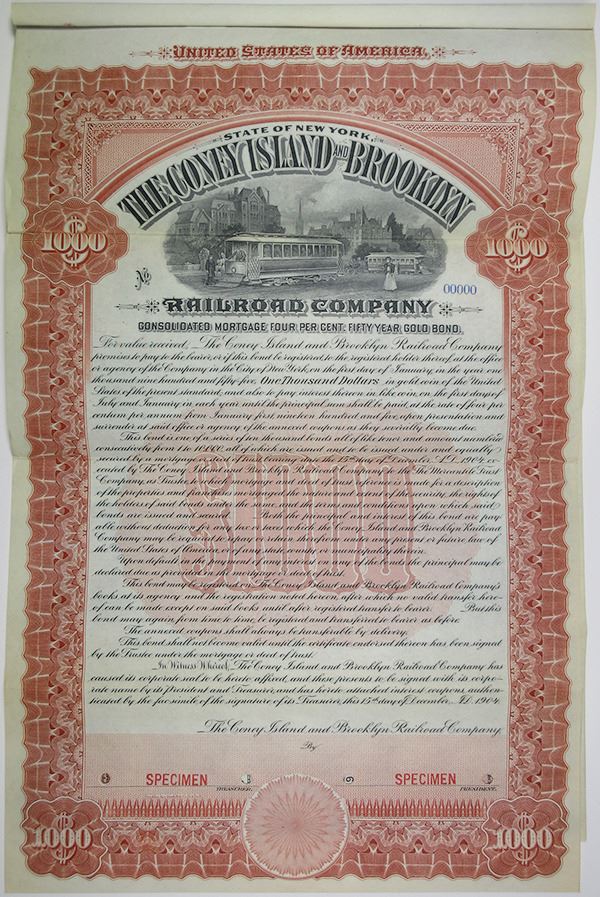 UNITED STATES OF AMERICA.
STATE OF NEW YORK,
THE CONEY ISLAND AND BROOKLYN
$1000
$1000
No
00000
RAILROAD COMPANY
CONSOLIDATED MORTGAGE FOUR PER CENT. FIFTY YEAR GOLD BOND.
For value received, The Coney Island and Brooklyn Railroad Company
promises to pay to the bearer, or if this bond be registered to the registered holder thereof, at the office
or agency of the Company in the City of New York, on the first day of January, in the year one
thousand nine hundred and fifty five, One Thousand Dollars in gold coin of the United
States of the present standard, and also to pay interest thereon in like coin, on the first days of
July and January in each year until the principal sum shall be paid, at the rate of four per
centum per annum from January first, nineteen hundred and five, upon presentation and
surrender at said office or agency of the annexed coupons as they severally become due.
This bond is one of a series of ten thousand bonds all of like tenor and amount numbered
consecutively from 1 to 10,000, all of which are and to be issued under and equally
secured by a mortgage or deed of trust bearing date the 15th day of December A.D. 1904, ex-
ecuted by The Coney Island and Brooklyn Railroad Company to the The Mercantile Trust
Company, as Trustee, to which mortgage or deed of trust reference is made for a description
of the properties and franchises mortgaged, the nature and extent of the security, the rights of
the holders of said bonds under the same and the terms and conditions upon which said
bonds are issued and secured. Both the principal and interest of this bond are pay-
able without deduction for any tax or taxes which the Coney Island and Brooklyn Railroad
Company may be required to pay or retain therefrom under any present or future law of
the United States of America or of any state, county or municipality therein.
Upon default in the payment of any interest on any of the bonds the principal may be
declared due as provided in the mortgage or deed of trust.
This bond may be registered on The Coney Island and Brooklyn Railroad Company's
books at its agency and the registration noted hereon, after which no valid transfer here-
of can be made except on said books until after registered transfer to bearer. But this
bond may again from time to time, be registered and transferred to bearer as before.
The annexed coupons shall always be transferable by delivery.
This bond shall not become valid until the certificate endorsed thereon has been signed
by the Trustee under the mortgage or deed of trust.
In Witness Whereof, The Coney Island and Brooklyn Railroad Company has
caused its corporate seal to be hereto affixed, and these presents to be signed with its corpo-
rate name by its President and Treasurer, and has hereto attached interest coupons, authen-
ticated by the facsimile of the signature of its Treasurer, this 15th day of December, A.D. 1904.
The Coney Island and Brooklyn Railroad Company,
By
SPECIMEN
SPECIMEN
TREASURER.
PRESIDENT.
$1000
$1000